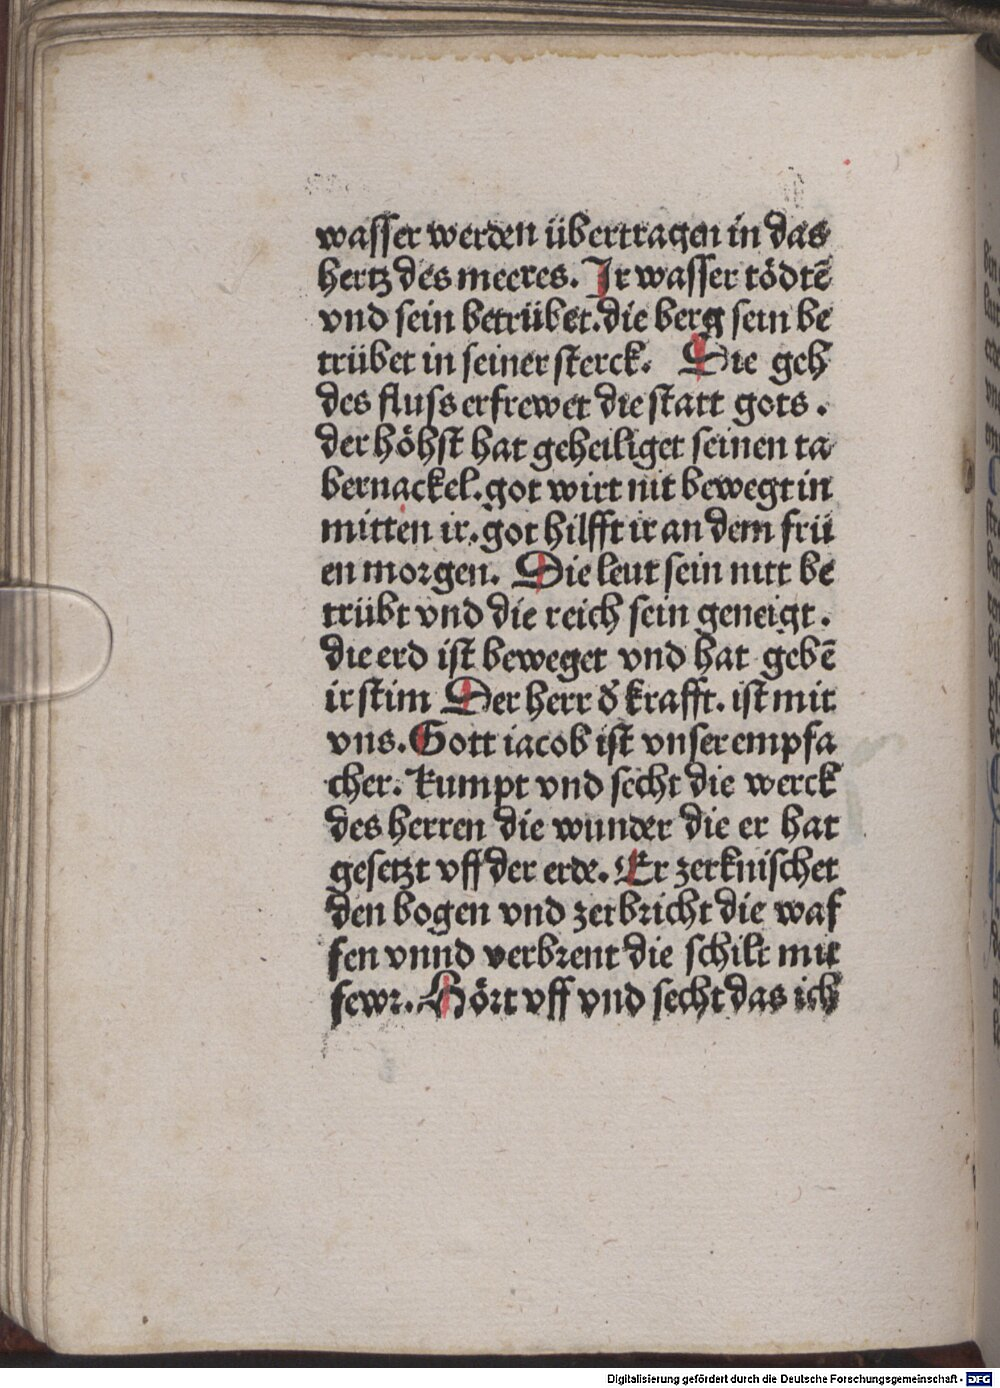 wasser werden übertragen in das
hertz des meeres. Ir wasser tödtē
vnd sein betrübet. die berg sein be
trübet in seiner sterck. Die geh
des fluss erfrewet die statt gots.
der höhst hat geheiliget seinen ta
bernackel. got wirt nit bewegt in
mitten ir. got hilfft ir an dem frü
en morgen. Die leut sein nitt be
trübt vnd die reich sein geneigt.
die erd ist beweget vnd hat gebē
ir stim Der herr d̕ krafft. ist mit
vns. Gott iacob ist vnser empfa
cher. kumpt vnd secht die werck
des herren die wunder die er hat
gesetzt vff der erde. Er zerknischet
den bogen vnd zerbricht die waf
fen vnnd verbrent die schilt mit
fewr. Hört vff vnd secht das ich
Digitalisierung gefördert durch die Deutsche Forschungsgemeinschaft - DFG